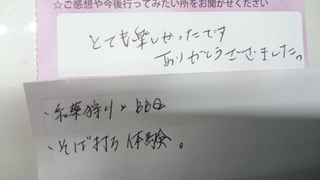 ☆ご感想や今後行ってみたい所をお聞かせください
とても楽しかったです
ありがとうございました。
・紅葉狩り×BBQ
・そば打ち体験。